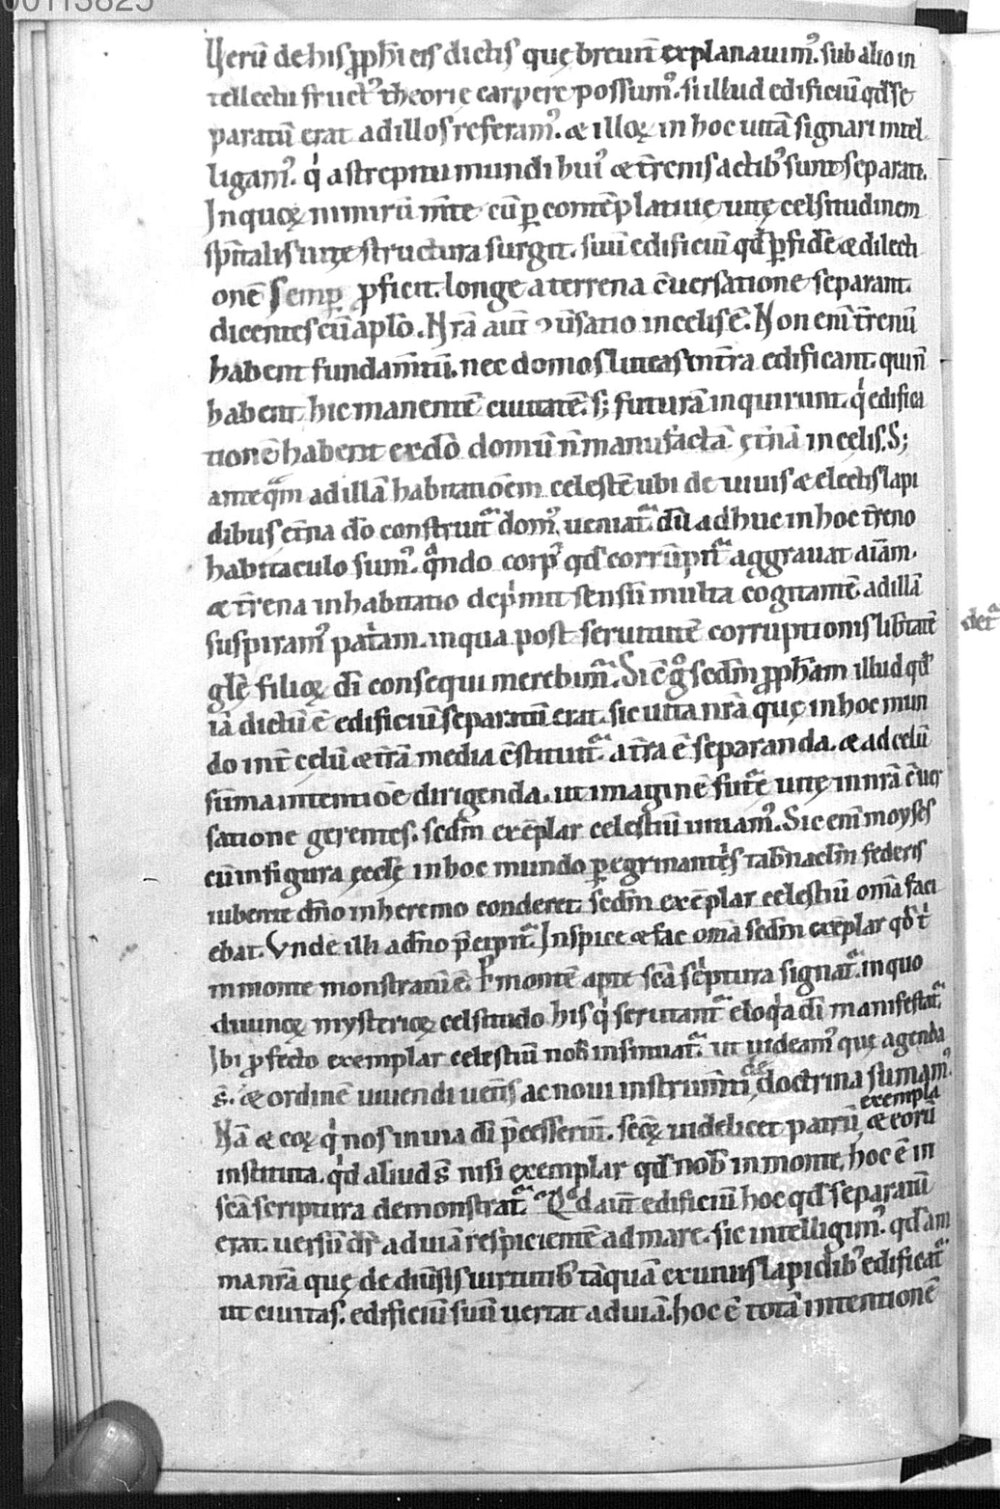 00113825
Uerū de his ꝓph̄icis dictis quę breuit̄ explanauim᷒. sub alio in
tellectu fruct᷒ theorię carpere possum᷒. si illud edificiū qd̄ se
paratū erat ad illos referam᷒. & illoꝝ in hoc uitā signari intel
ligam᷒. qͥ a strepitu mundi hui᷒ & t̄renis actib᷒ sunt separati.
In quoꝝ nimirū m̄te cū ꝑ contēplatiuę uitę celsitudinem
sp̄italis uitę structura surgit. suū edificiū qd̄ ꝑ fidē & dilecti
onē semꝑ ꝓficit. longe a terrena c̄uersatione separant.
dicentes cū aplo. Nr̄a aut̄ ꝯu̅satio in celis ē. Non enī t̄renū
habent fundam̄tū. nec domos luteas in t̄ra edificant. quin̄
habent hic manentē ciuitatē. s; futurā inquirunt. qͥ edifica
tionē habent ex dō domū n̄ manufactā. ęt̄nā in cęlis. S;
anteqͣm ad illā habitatiōem celestē ubi de uiuis & electis lapi
dibus et̄na dō construitᷓ dom᷒. ueniatᷓ dū adhuc in hoc t̄reno
habitaculo sum᷒. qͣndo corp᷒ qd̄ corrūpitᷓ aggrauat aīam.
& t̄rena inhabitatio dep̍mit sensū multa cogitantē. ad illā
suspiram᷒ pat̍am. in qua post seruitutē corruptionis lib̄tatē
glę̄ filioꝝ dī consequi merebim᷒ᷓ. Si ē gͦ sedm̄ ꝓph̄am illud qd̄
iā dictū ē edificiū separatū erat. sic uita nr̄a quę in hoc mun
do int̄ cęlū & t̄rā media c̄stituitᷓ a t̄ra ē separanda. & ad celū
sūma intentiōe dirigenda. ut imaginē futę uitę in nr̄a c̄uer
satione gerentes. sedm̄ exēplar celestiū uiuam᷒. Sic enī moyses
cū in figura ęcclę in hoc mundo ꝑegrinantis tab̄nacl̄m federis
iubente dn̄o in heremo conderet. sedm̄ exēplar celestiū om̄a faci
ebat. Vnde illi a dn̄o p̄cipitᷓ. Inspice & fac om̄a sedm̄ exēplar qd̄ t̍
in monte monstratū ē. Ꝑ montē apte scā sc̍ptura signatᷓ. in quo
diuinoꝝ mysterioꝝ celsitudo his qͥ scrutantᷓ eloqͥa dī manifestatᷓ.
Ibi ꝓfecto exemplar celestiū nob̄ insinuatᷓ. ut uideam᷒ quę agenda
s̄. & ordinē uiuendi uet̄is ac noui instrum̄ti de doctrina sumam᷒.
Nā & eoꝝ qͥ nos in uia dī p̄cesserun̄t. scōꝝ uidelicet patrū exempla & eorū
instituta. qͥd aliud s̄ nisi exemplar qd̄ nob̄ in monte, hoc ē in
scā scriptura demonstratᷓ. Qd aut̄ edificiū hoc qd̄ separatū
erat. uersū dr̄ ad uiā respicientē ad mare. sic intelligim᷒. qd̄ am
ma nr̄a quę de diu̅sis uirtutib᷒ tāquā ex uiuis lapidib᷒ edificatᷓ.
ut ciuitas. edificiū suū uertat ad uiā. hoc ē totā intentionē